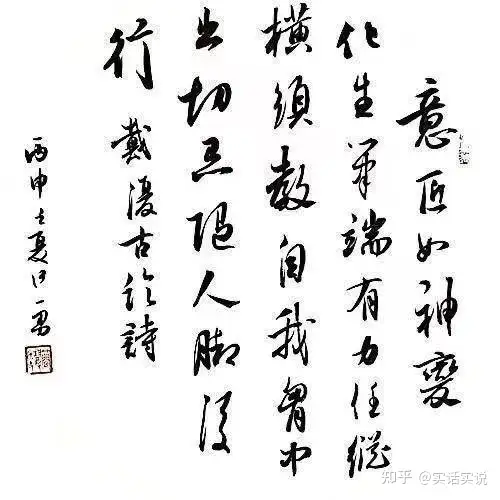 意匠如神變
化生筆端有力任縱
橫須教自我胷中
出切忌隨人脚後
行
戴復古論詩
丙申之夏
知乎 @实话实说